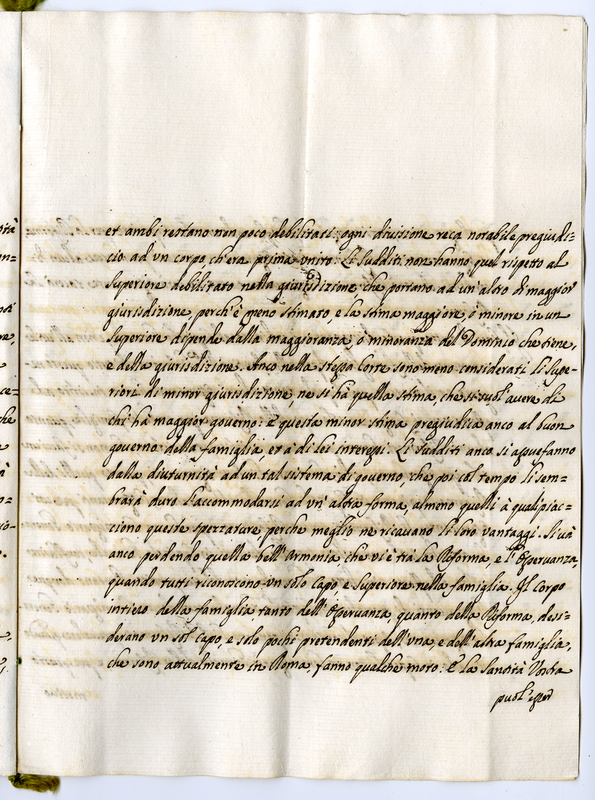 et ambi restano non poco debilitati: ogni divisione reca notabile pregiudi=
cio ad un corpo ch'era prima unito. Li sudditi non hanno quel rispetto al
superiore debilitato nella giurisdizione che portano ad un'altro di maggior
giurisdizione, perch'è meno stimato, e la stima maggiore, ò minore in un
superiore dipende dalla maggioranza, ò minoranza del Dominio che tiene,
e della giurisdizione. Anco nella stessa Corte sono meno considerati li Supe=
riori di minor giurisdizione, ne si hà quella stima, che si suol'avere di
chi hà maggior governo: e questa minor stima pregiudica anco al buon
governo della famiglia, et à di lei interessi. Li sudditi anco si assuefanno
dalla diuturnità ad un tal sistema di governo, che poi col tempo li sem=
brarà duro l'accommodarsi ad un'altra forma, almeno quelli à quali piac=
ciono queste sperzature, perche meglio ne ricavano li loro vantaggi. Si và
anco perdendo quella bell'Armonia, che vi è trà la Riforma, e l'Osservanza,
quando tutti riconoscono un solo Capo, e Superiore nella famiglia. Il Corpo
intiero della famiglia tanto dell'Osservanza, quanto della Riforma, desi=
derano un sol Capo, e solo pochi pretendenti dell'una, e dell'altra famiglia,
che sono attualmente in Roma, fanno qualche moto: E la Santità Vostra
puol'esser